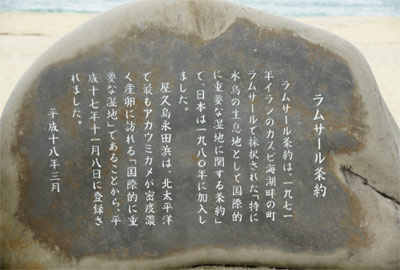 ラムサール条約
ラムサール条約は、一九七一
年イランのカスピ海湖畔の町
ラムサールで採択された「特に
水鳥の生息地として国際的
に重要な湿地に関する条約」
で、日本は一九八〇年に加入し
ました。
屋久島永田浜は、北太平洋
で最もアカウミガメが密度濃
く産卵に訪れる「国際的に重
要な湿地」であることから、平
成十七年十一月八日に登録さ
れました。
平成十八年三月